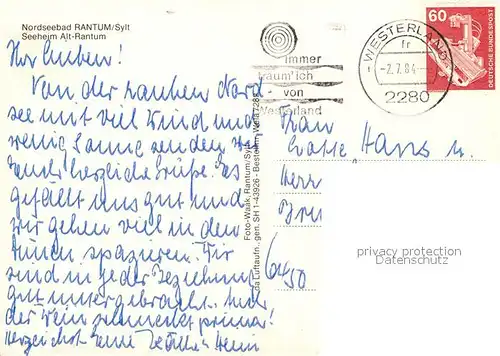 Nordseebad RANTUM/Sylt
Seeheim Alt-Rantum
Ihr Lieben!
Von der rauhen Nord
see mit viel Wind und
wenig Sonne senden wir
Euch herzliche Grüße. Es
gefällt uns gut und
wir gehen viel in den
Dünen spazieren. Wir
sind in jeder Beziehung
gut untergebracht. Auch
der Wein schmeckt prima!
Herzlichst Eure
Foto-Waak, Rantum/Sylt
Luftaufn., gen. SH 1-43926 - Bestell-Nr.
immer
träum' ich
von
Westerland
WESTERLAND
fr
-2.7.84
2280
60
DEUTSCHE BUNDESPOST
Frau
Hans u.
Herr
6450
privacy protection
Datenschutz